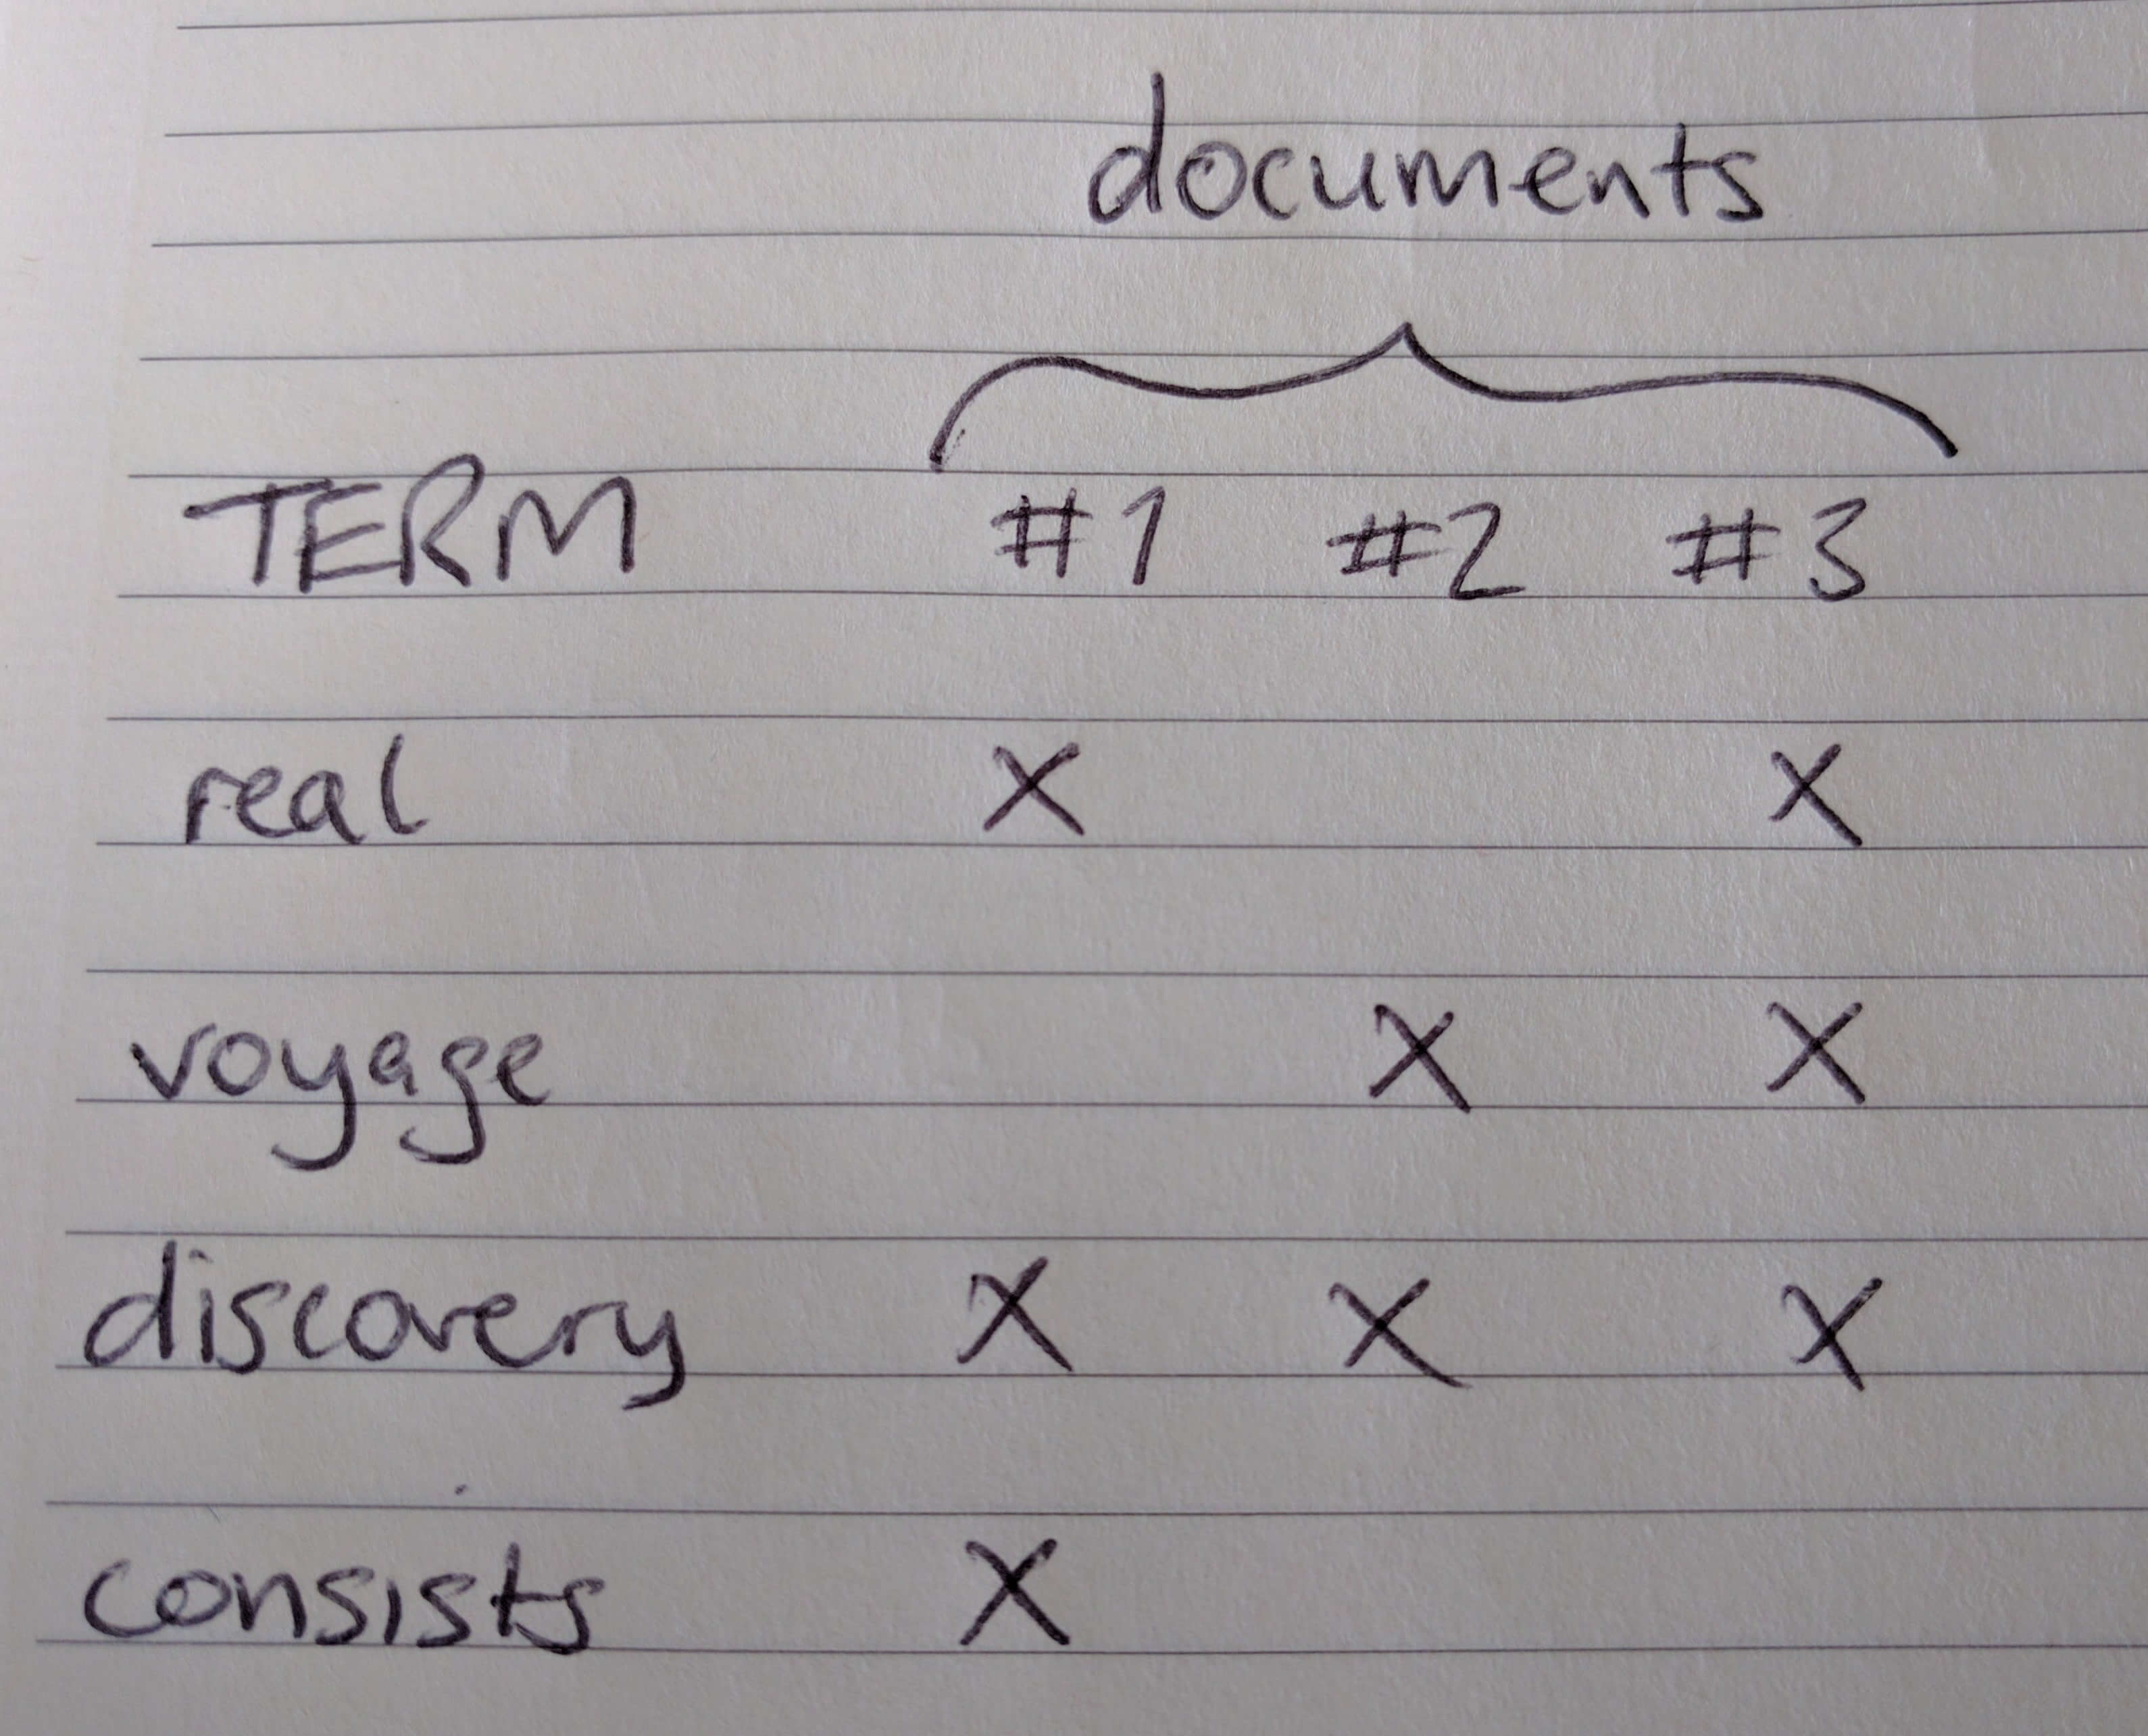 documents
TERM #1 #2 #3
real X X
voyage X X
discovery X X X
consists X